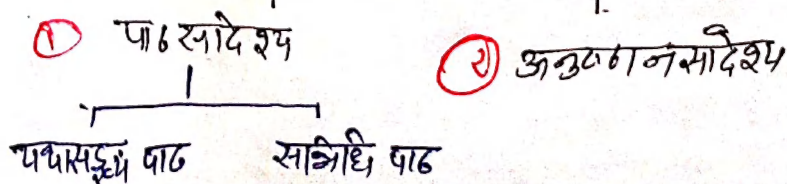 ① पाठ सादेश्य
② अनुष्ठानसादेश्य
यथासङ्ख्यं पाठ सन्निधि पाठ